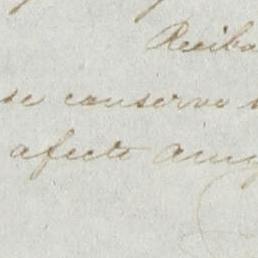 Reciba
se conserve
afecto Amig